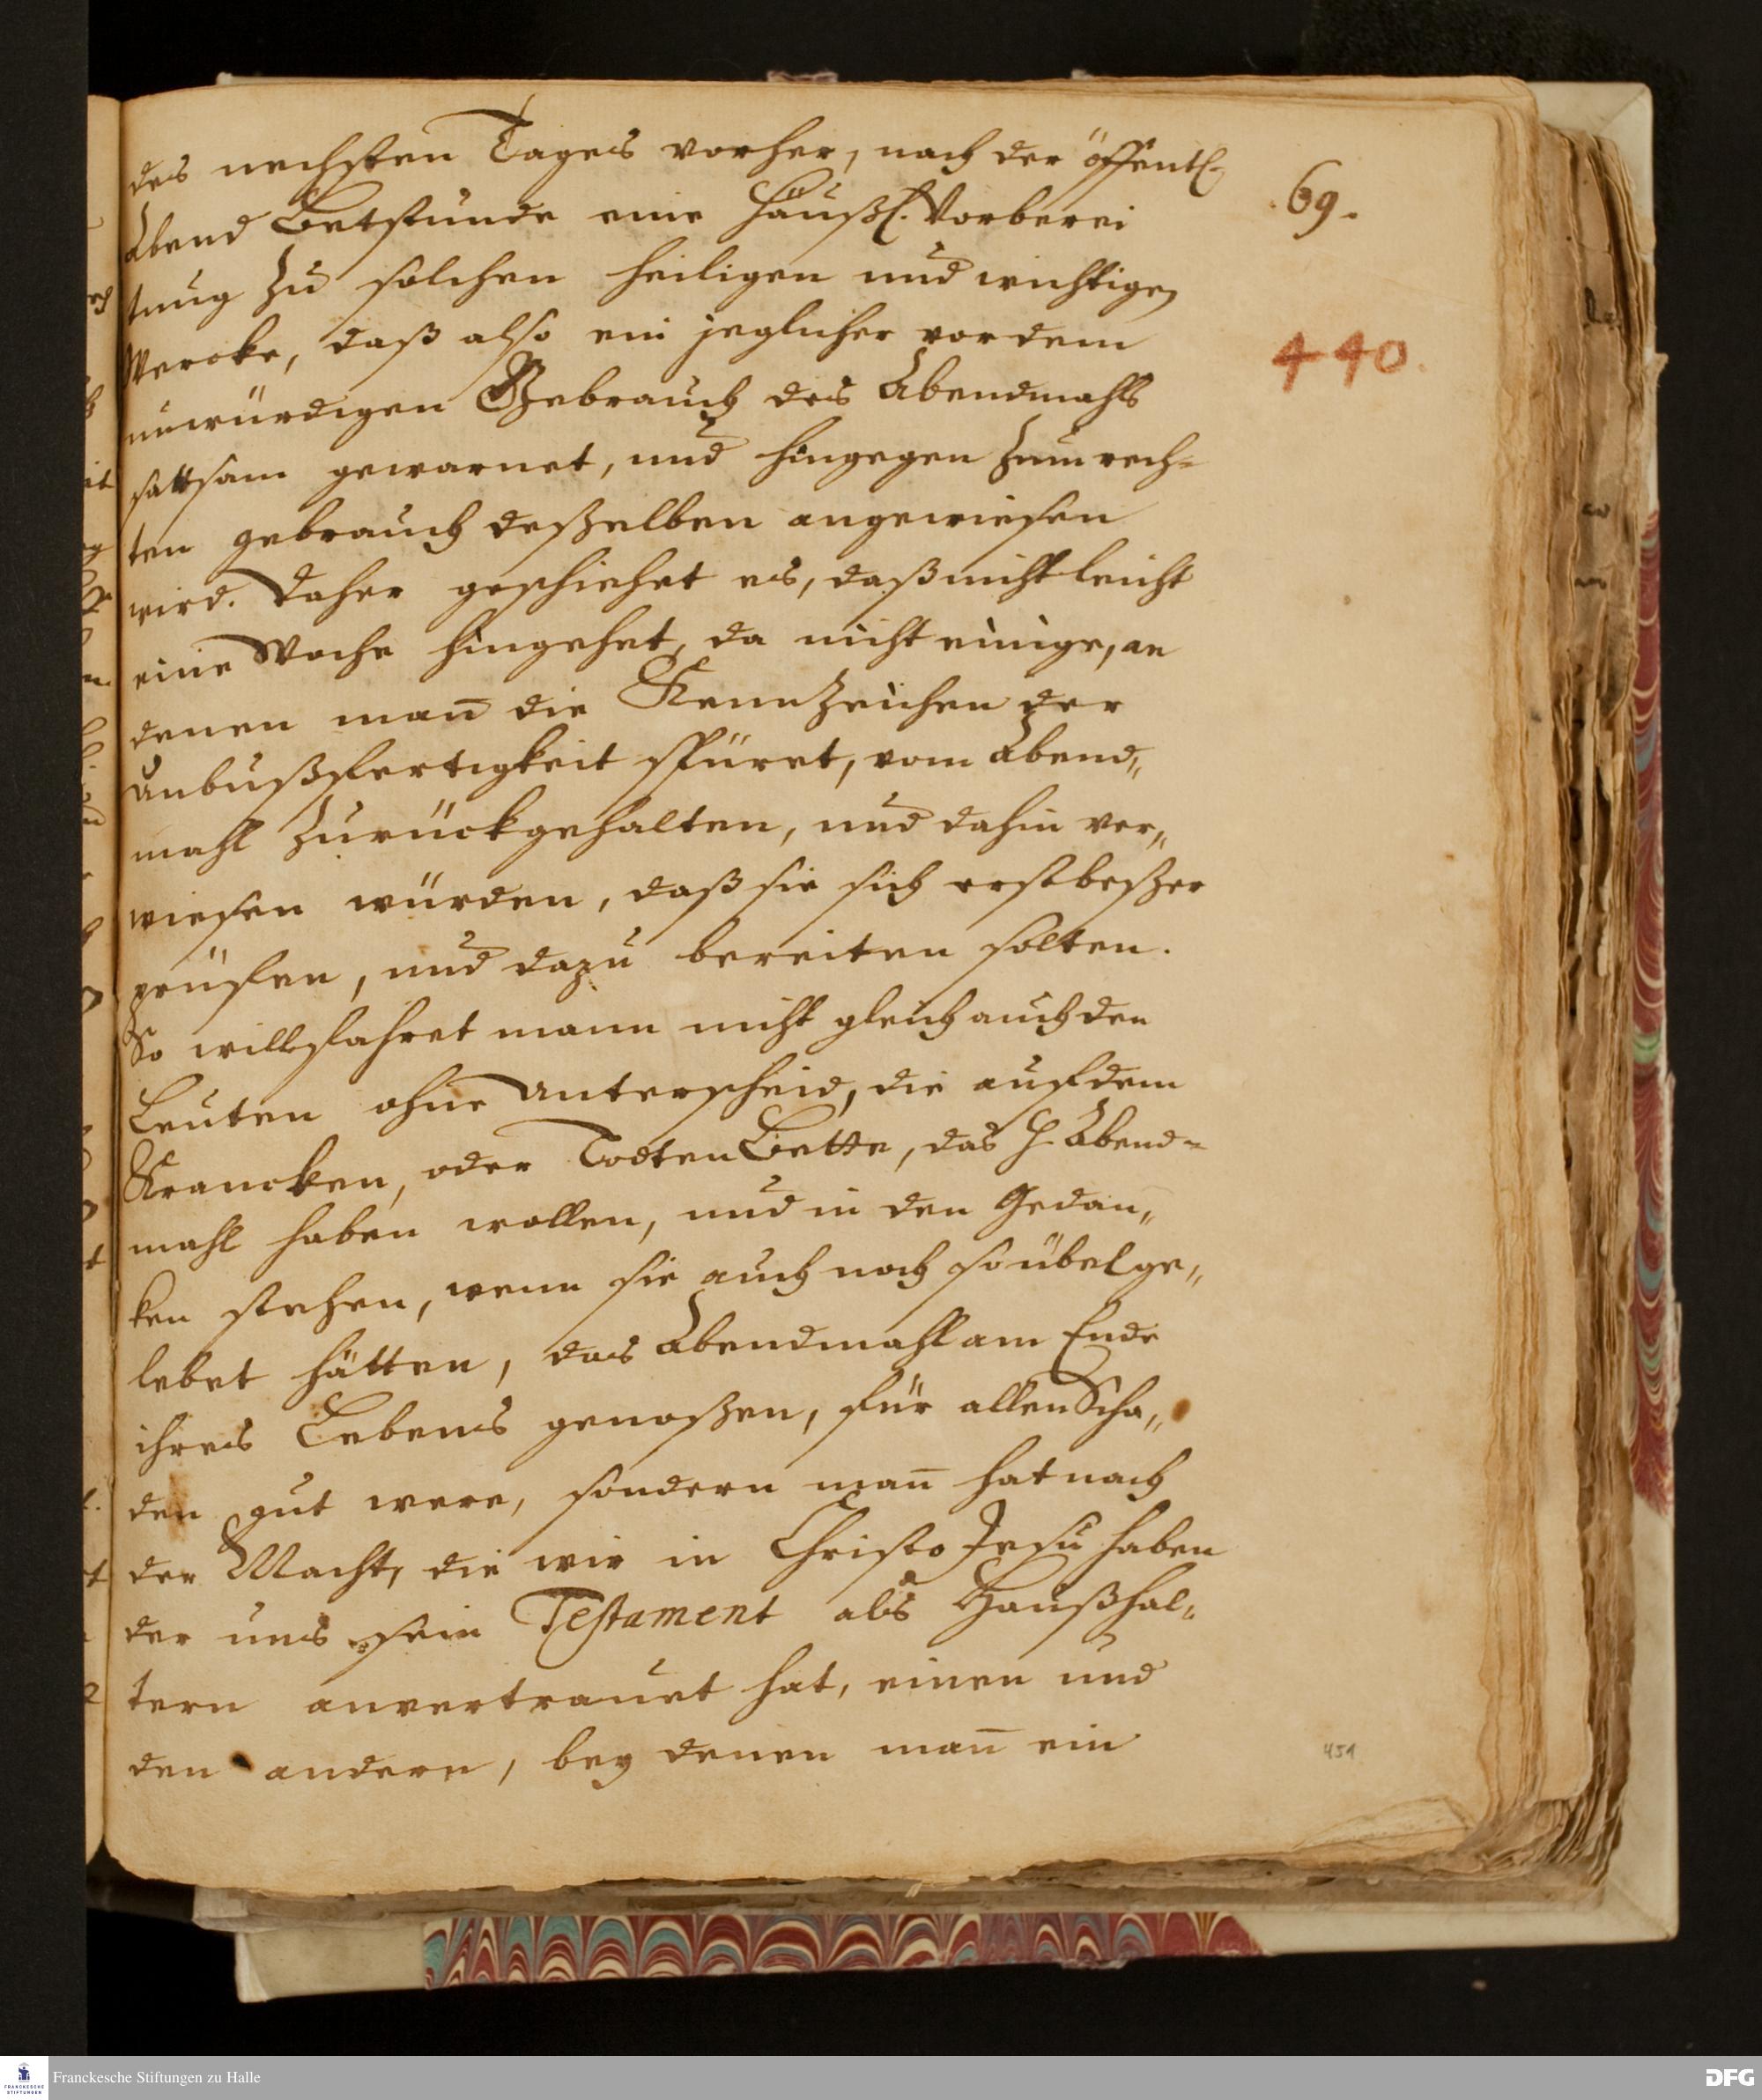 des nechsten Tages vorher, nach der öffentl.
Abend Betstunde eine Häußl. Vorberei
tung zu solchen heiligen und wichtigen
Wercke, daß also ein jeglicher vor dem
unwürdigen Gebrauch des Abendmahls
sattsam gewarnet, und hingegen zum rech=
ten gebrauch deßelben angewiesen
wird. Daher geschiehet es, daß nicht leicht
eine Woche hingehet, da nicht einige, an
denen man̄ die Kennzeichen der
Unbußfertigkeit spüret, vom Abend„
mahl zurückgehalten, und dahin ver„
wiesen würden, daß sie sich erst beßer
prüfen, und dazu bereiten solten.
So willfahret mann nicht gleich auch den
Leuten ohne Unterscheid, die auf dem
Krancken, oder Todten Bette, das H. Abend=
mahl haben wollen, und in den Gedan„
ken stehen, wenn sie auch noch so übel ge„
lebet hätten, das Abendmahl am Ende
ihres Lebens genoßen, für allen Scha„
den gut were, sondern man̄ hat nach
der Macht, die wir in Christo Jesu haben
der uns sein Testament als Haußhal„
tern anvertrauet hat, einen und
den andern, bey denen man̄ ein
69.
440.
451
Franckesche Stiftungen zu Halle
FRANCKESCHE STIFTUNGEN
DFG